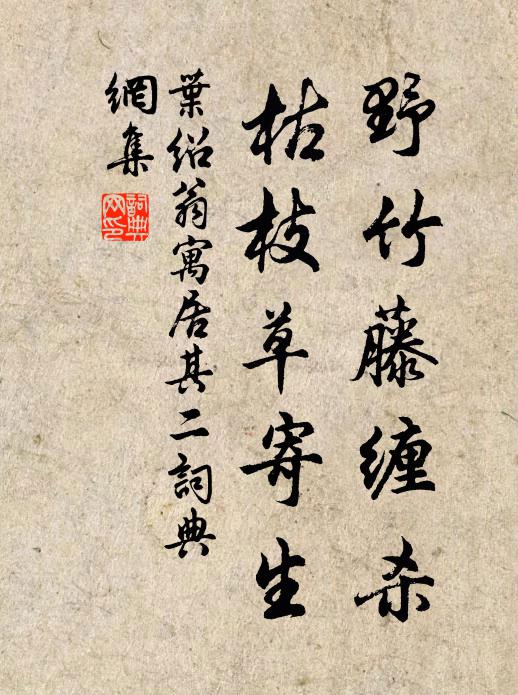 野竹藤缠杀
枯枝草寄生
葉紹翁寓居其二詞典
網集
詞典网印